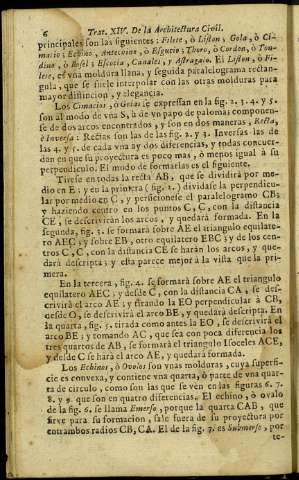 6 Trat. XIV. De la Architectura Civil.
principales son las siguientes: Filete, ò Liston, Gola, ò Ci-
macio; Echino, Antecoino, ò Esgucio; Thoro, ò Cordon, ò Ton-
dino, ò Bosel; Escocia, Canales, y Astragalo. El Liston, ò Fi-
lete, es vna moldura llana, y seguida paralelograma rectan-
gula, que se suele interpolar con las otras molduras para
mayor distincion, y elegancia.
Los Cimacios, ò Golas se expressan en la fig. 2. 3. 4. y 5.
son al modo de vna S, ù de vn papo de paloma componen-
se de dos arcos encontrados, y son en dos maneras; Recta,
è Inversa: Rectas son las de las fig. 2. y 3. Inversas las de
las 4. y 5. de cada vna ay dos diferencias, y todas concuer-
dan en que su proyectura es poco mas, ò menos igual à su
perpendiculo. El modo de formarlas es el siguiente.
Tirese en todas la recta AB, que se dividirà por me-
dio en E; y en la primera (fig. 2.) dividase la perpendicu-
lar por medio en C, y perficionese el paralelogramo CB;
y haziendo centro en los puntos C, C, con la distancia
CE, se descrivirán los arcos, y quedarà formada. En la
segunda, fig. 3. se formarà sobre AE el triangulo equilate-
ro AEC; y sobre EB, otro equilatero EBC; y de los cen-
tros C, C, con la distancia CE se haràn los arcos, y que-
darà descripta; y esta parece mejor à la vista que la pri-
mera.
En la tercera, fig. 4. se formarà sobre AE el triangulo
equilatero AEC; y desde C, con la distancia CA, se des-
crivirà el arco AE; y tirando la EO perpendicular à CB,
desde O, se descrivirà el arco BE, y quedarà descripta. En
la quarta, fig. 5. tirada como antes la EO, se descrivirà el
arco BE; y tomando AC, que sea con poca diferencia los
tres quartos de AB, se formarà el triangulo Isoceles ACE,
y desde C se harà el arco AE, y quedarà formada.
Los Echinos, ò Ovolos son vnas molduras, cuya superfi-
cie es convexa, y contiene vna quarta, ò parte de vna quar-
ta de circulo, como son las que se vèn en las figuras 6. 7.
8. y 9. que son en quatro diferencias. El echino, ò ovalo
de la fig. 6. se llama Emerso, porque la quarta CAB, que
sirve para su formacion, sale fuera de su proyectura por
entrambos radios CB, CA. El de la fig. 7. es Submerso, por
te-